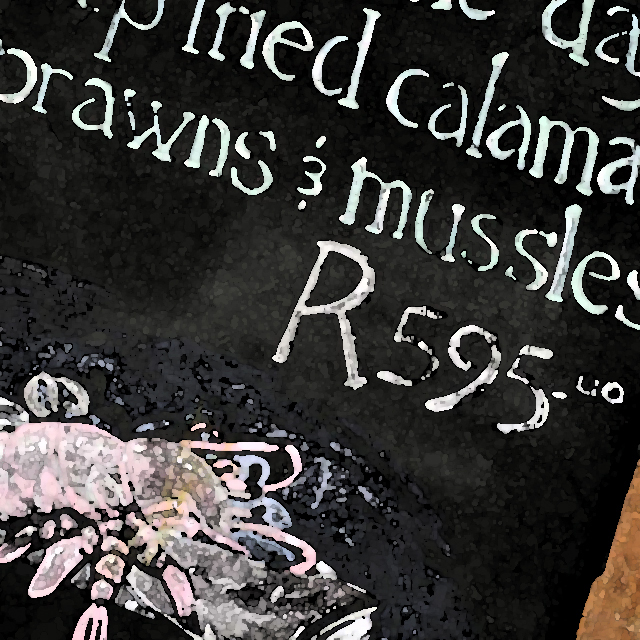 da
fried calama
prawns & mussles
R595-00